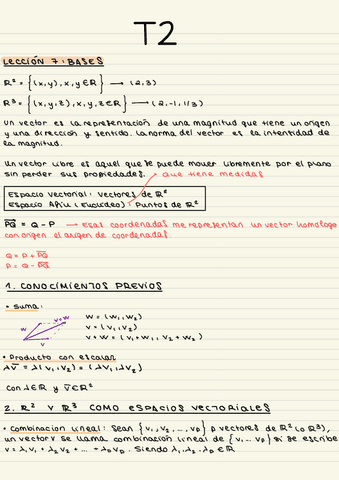 T2
LECCIÓN 7: BASES
R² = {(x,y), x,y ∈ R} → (2,3)
R³ = {(x,y,z), x,y,z ∈ R} → (2,-1,1/3)
Un vector es la representación de una magnitud que tiene un origen
y una dirección y sentido. La norma del vector es la intentidad de
la magnitud.
Un vector libre es aquel que se puede mover libremente por el plano
sin perder sus propiedades. que tiene medidas
Espacio Vectorial: Vectores de R²
Espacio Afín (Euclídeo): Puntos de R²
PQ = Q - P → Esas coordenadas me representan un vector homólogo
con origen el origen de coordenadas.
Q = P + PQ
P = Q - PQ
1. CONOCIMIENTOS PREVIOS
• Suma:
w = (w₁, w₂)
v = (v₁, v₂)
v + w = (v₁ + w₁, v₂ + w₂)
w
v+w
v
• Producto con escalar
λv = λ(v₁, v₂) = (λv₁, λv₂)
Con λ ∈ R y v ∈ R²
2. R² Y R³ COMO ESPACIOS VECTORIALES
• Combinación lineal: Sean {v₁, v₂, ..., vp} p vectores de R² (o R³),
un vector v se llama combinación lineal de {v₁ ... vp} si se escribe
v = λ₁v₁ + λ₂v₂ + ... + λpvp. Siendo λ₁, λ₂..λp ∈ R